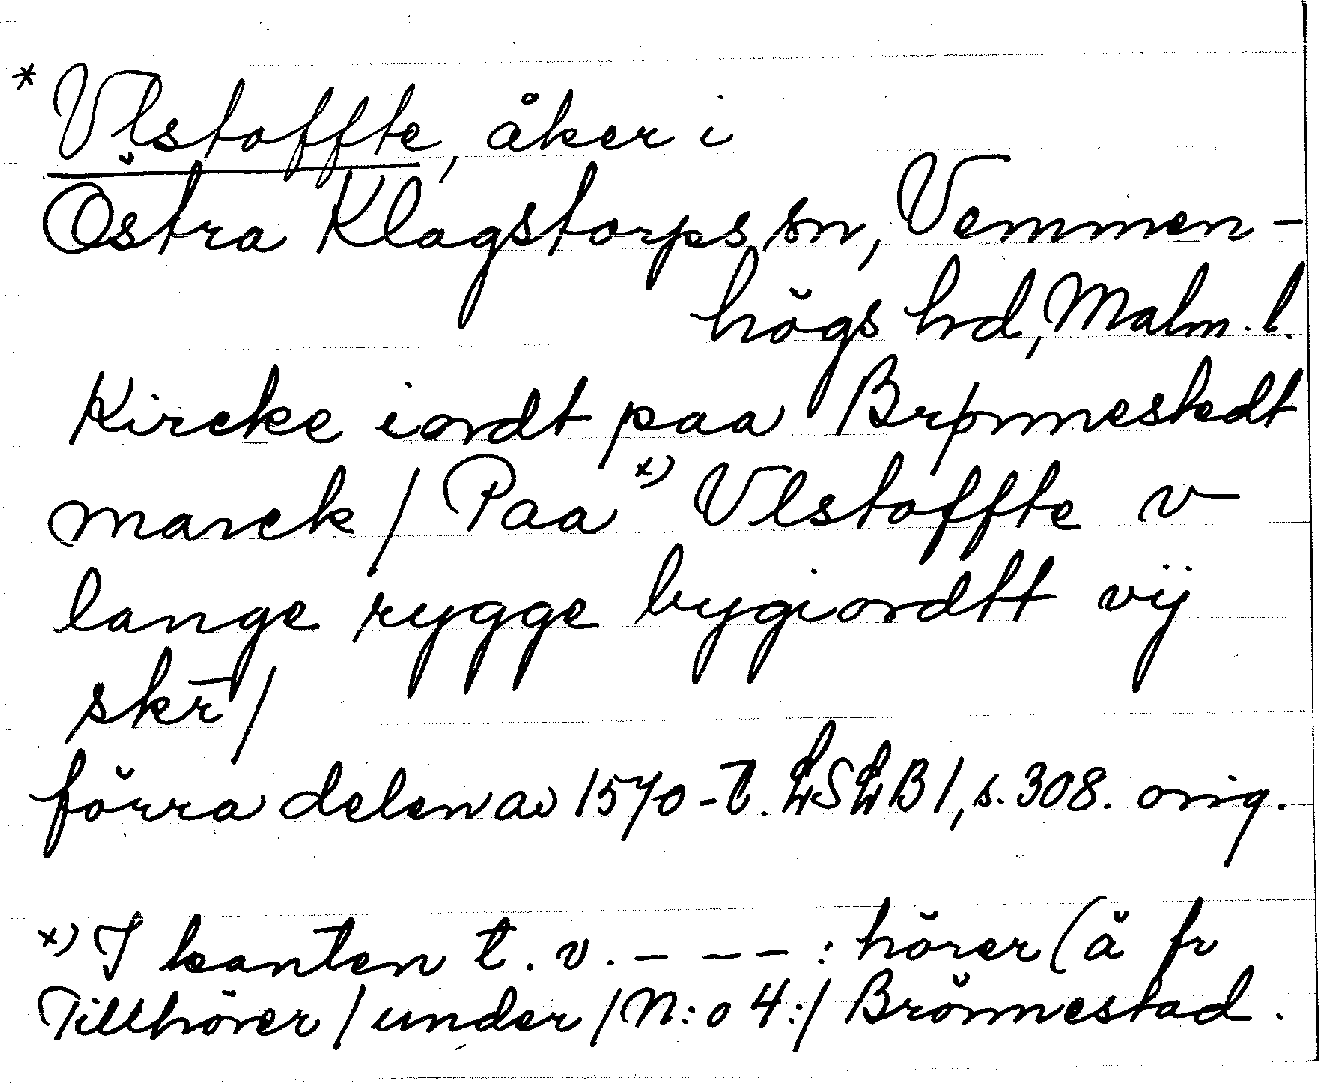 * Vlstoffte, åker i
Östra Klagstorps sn, Vemmen-
högs hd, Malm. l.
Kircke iordt paa Brønnestedt
marck / Paa x) Vlstoffte v
lange rygge bygiordtt vij
skr̄ /
förra delen av 1570-t. LSLB 1, s. 308. orig.
x) I kanten t. v. - - - : hörer (ä fr
Tillhörer / under / N:o 4:/ Brönnestad.